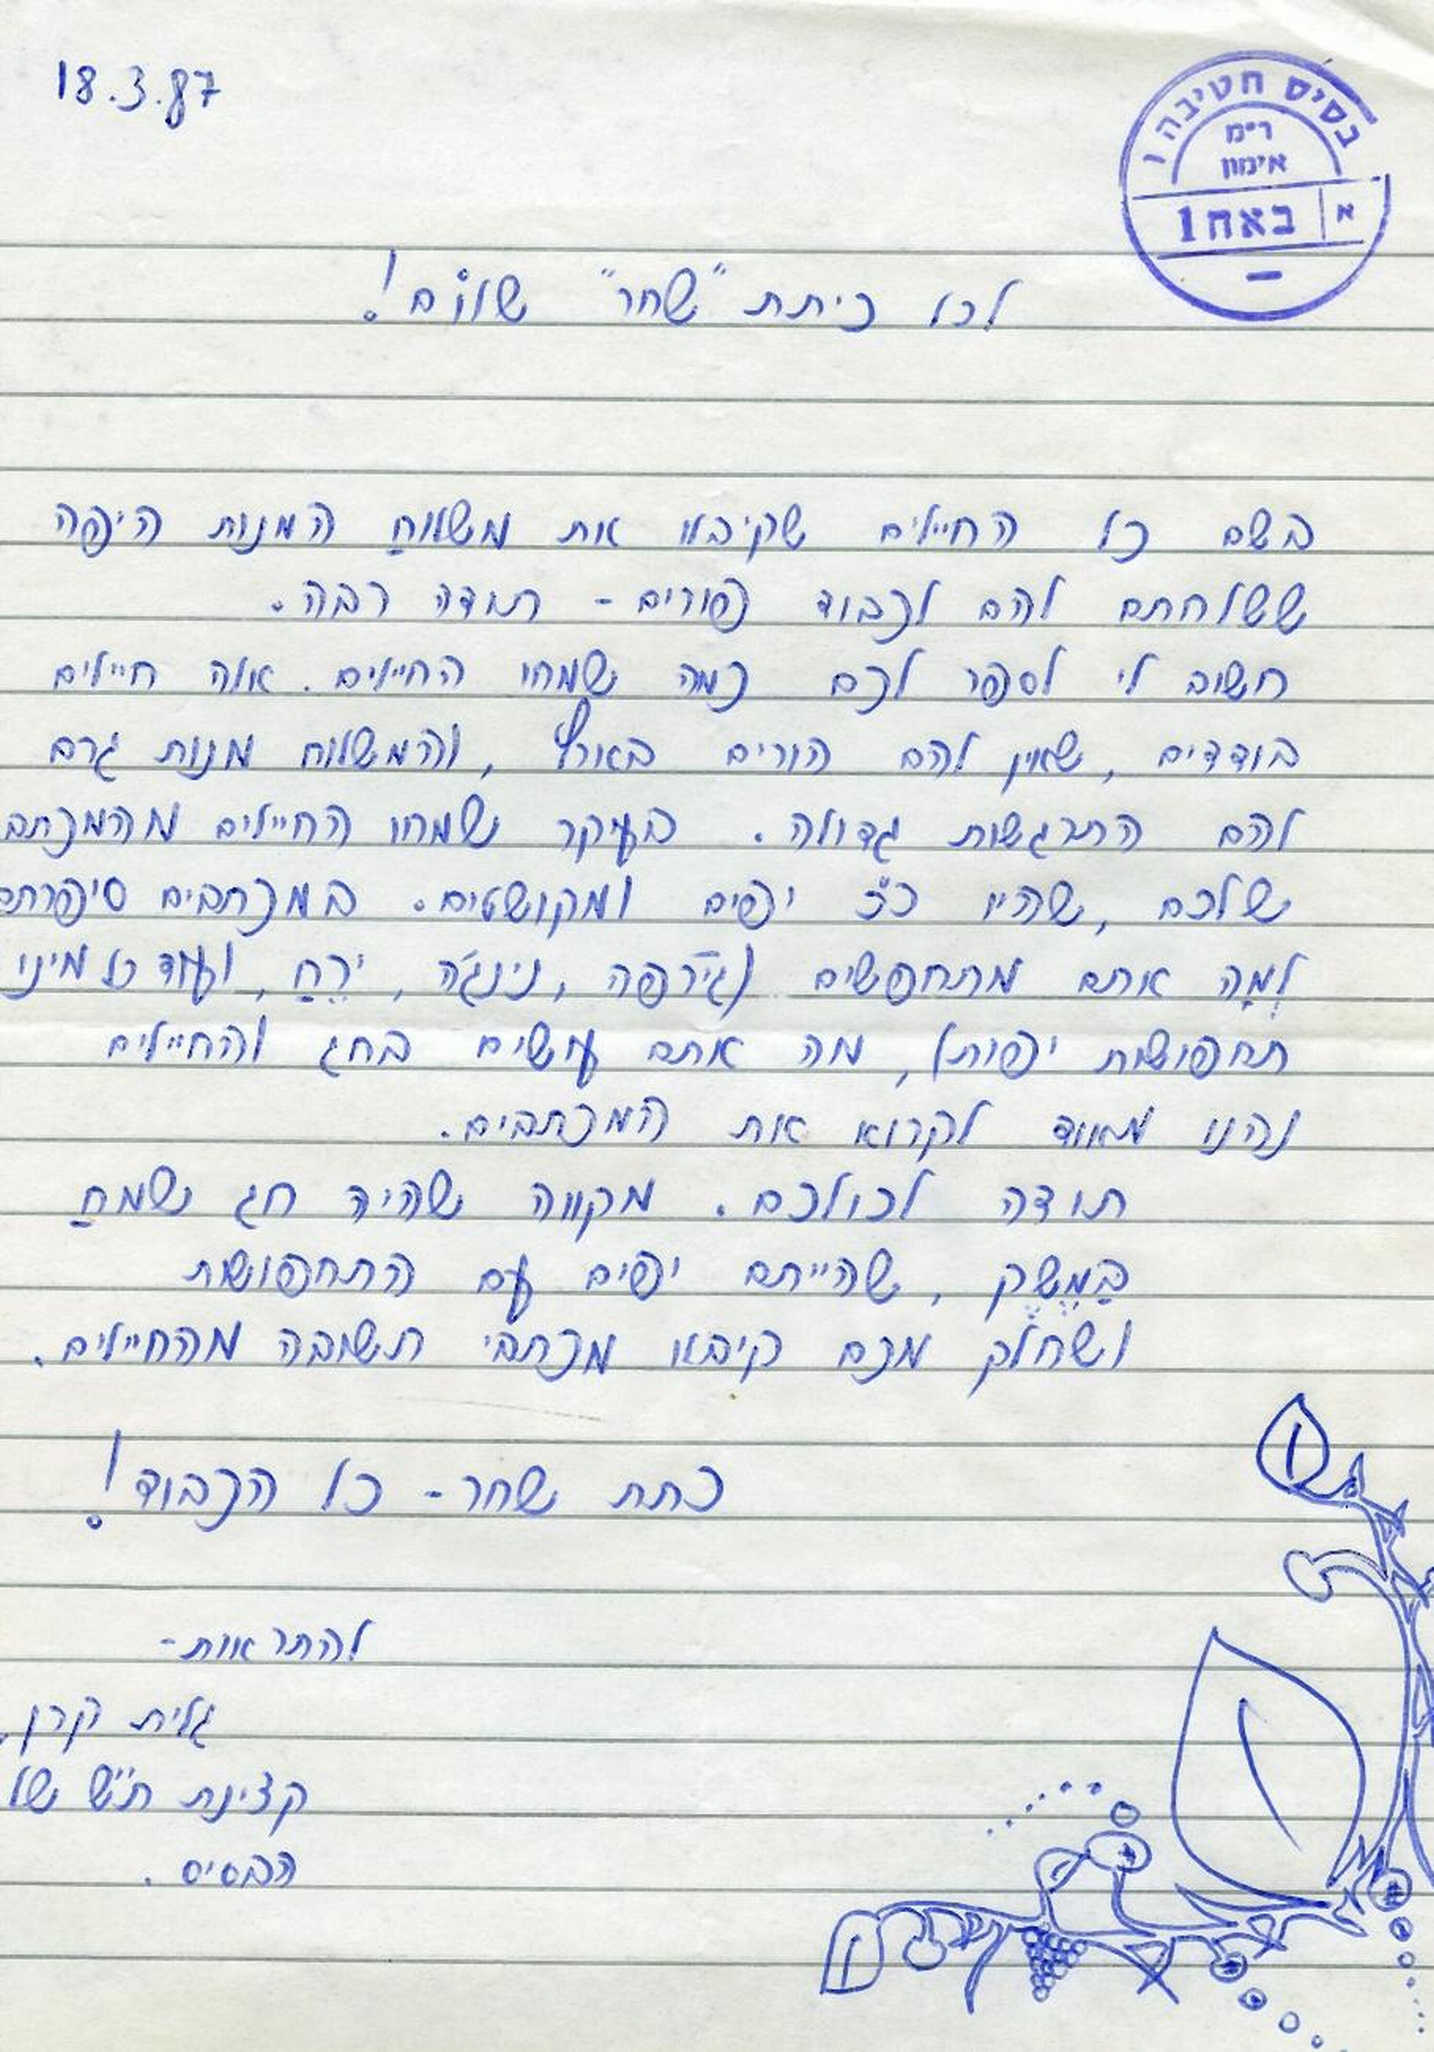 18.3.87
בסיס חטיבה ו
רימ
אימון
א באח 1
לכל כיתת "שחר" שלום!
בשם כל החיילים שקיבלו את משלוחַ המנות היפה
ששלחתם להם לכבוד פורים - תודה רבה.
חשוב לי לספר לכם כמה שמחו החיילים. אלה חיילים
בודדים, שאין להם הורים בארץ, והמשלוח מנות גרם
להם התרגשות גדולה. בעיקר שמחו החיילים מהמכתבים
שלכם, שהיו כ"כ יפים ומקושטים. במכתבים סיפרתם
לְמָה אתם מתחפשים (ג'ירפה, נינג'ה, ירֵחַ, ועוד כל מיני
תחפושות יפות), מה אתם עושים בחג והחיילים
נהנו מאוד לקרוא את המכתבים.
תודה לכולכם. מקווה שהיה חג שמחַ
בַּמֶשֶׁק, שהייתם יפים עם התחפושות
ושחלק מכם קיבלו מכתבי תשובה מהחיילים.
כתת שחר - כל הכבוד!
להתראות -
גלית קרן,
קצינת ת"ש של
הבסיס.